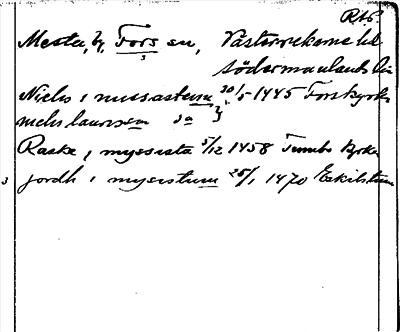 Rtb.
Mesta, by, Fors sn, Västerrekarne hd
södermanlands län
Niels i messastum 30/5 1445 Fors kyrka
niels laurissa sa
Raske i myssista 5/12 1458 Tumbo kyrka
3 jordh i mysistum 25/1 1470 Eskilstuna